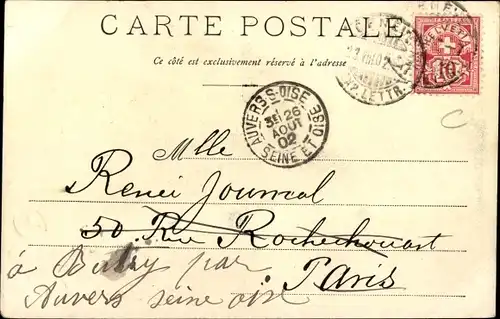 CARTE POSTALE
Ce côté est exclusivement réservé à l'adresse
HELVETIA
10
LETTR.
AUVERS-S-OISE
3E/26
AOUT
02
SEINE ET OISE
Mlle
Renée
50 Rue Rochechouart
à par Paris
Auvers seine oise
C